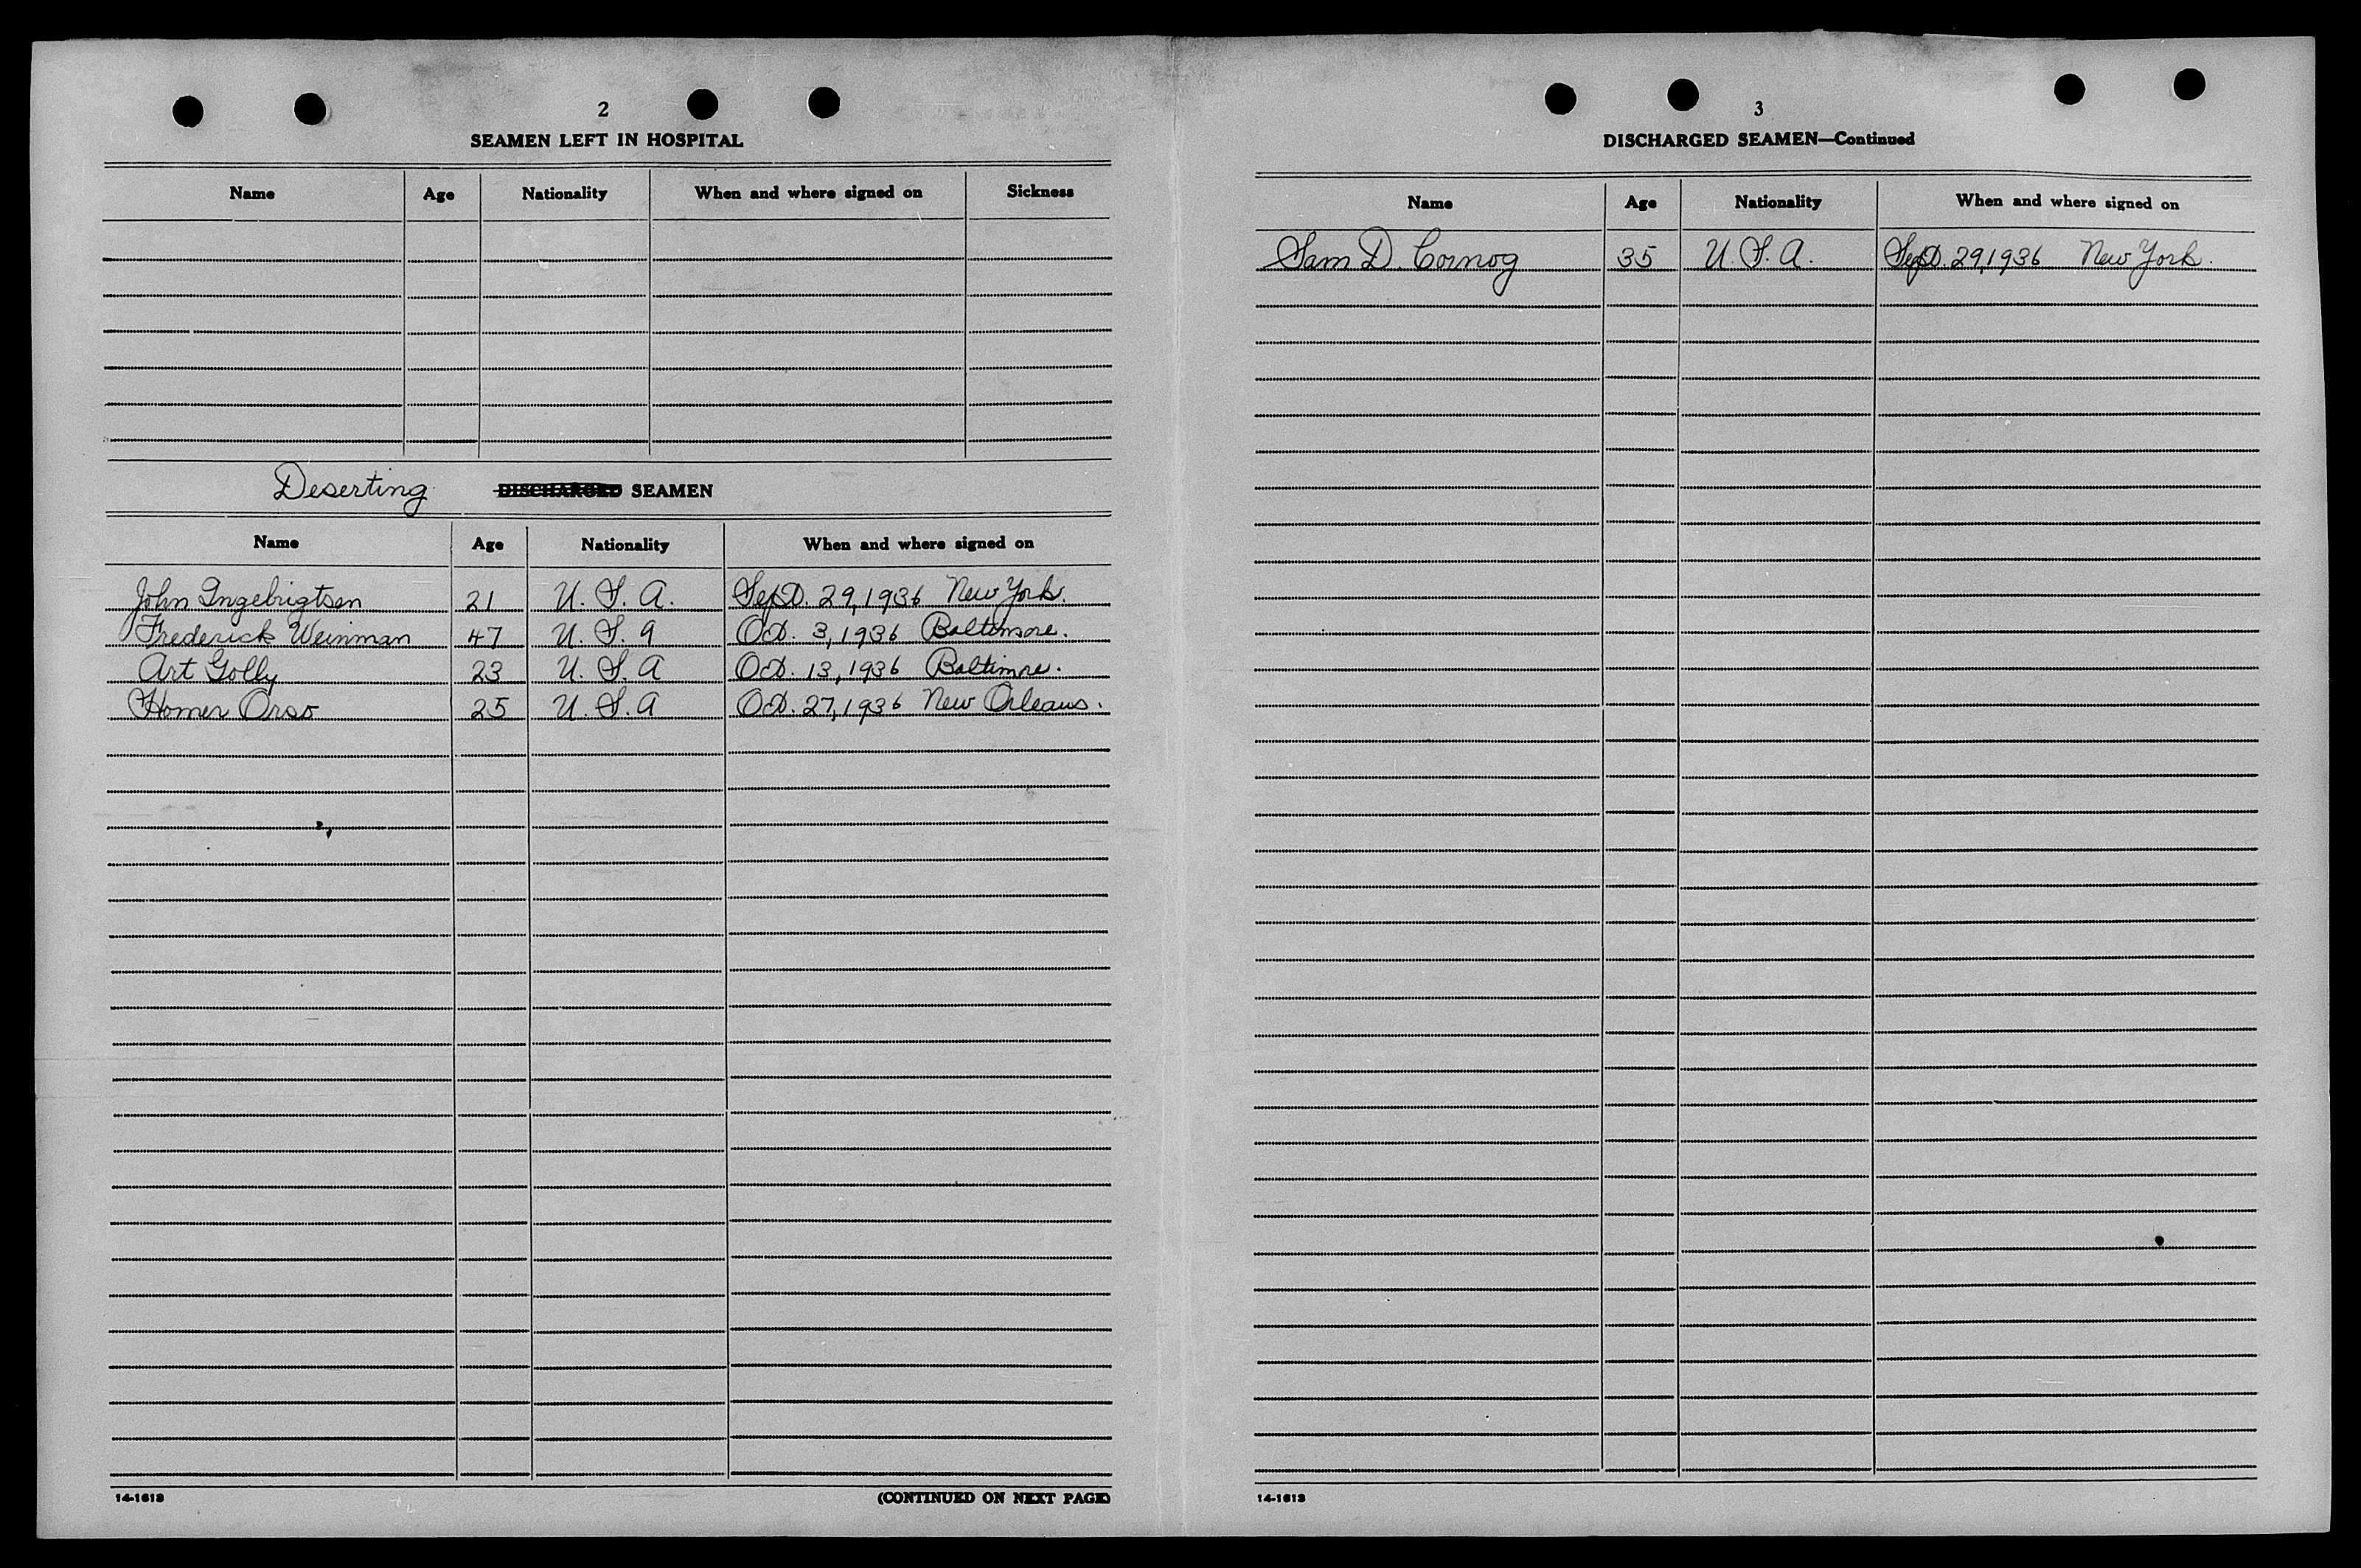 2
SEAMEN LEFT IN HOSPITAL
Name Age Nationality When and where signed on Sickness
Deserting DISCHARGED SEAMEN
Name Age Nationality When and where signed on
John Ingebrigtsen 21 U. S. A. Sept. 29, 1936 New York.
Frederick Weinman 47 U. S. A Oct. 3, 1936 Baltimore.
Art Golly 23 U. S. A Oct. 13, 1936 Baltimore.
Homer Orso 25 U. S. A Oct. 27, 1936 New Orleans.
14-1613 (CONTINUED ON NEXT PAGE)
3
DISCHARGED SEAMEN—Continued
Name Age Nationality When and where signed on
Sam D. Cornog 35 U. S. A. Sept. 29, 1936 New York.
14-1613